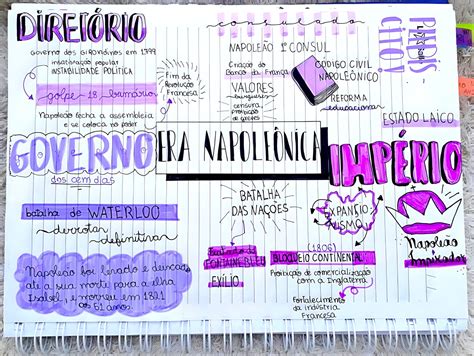 DIRETÓRIO
GOVERNO DOS GIRONDINOS EM 1799
INSATISFAÇÃO POPULAR
INSTABILIDADE POLÍTICA
golpe 18 brumário
Napoleão fecha a assembleia
e se coloca no poder
Fim da
Revolução
Francesa
consulado
NAPOLEÃO 1º CONSUL
Criação do
Banco da França
VALORES
burgueses
censura,
proibição
de greves
CÓDIGO CIVIL
NAPOLEÔNICO
REFORMA
educacional
CITO!
ESTADO LAICO
ERA NAPOLEÔNICA
GOVERNO
dos cem dias
batalha de WATERLOO
derrota
definitiva
Napoleão foi levado e
até a sua morte para a ilha
e morreu em 1821
aos 51 anos.
BATALHA
DAS NAÇÕES
FONTAINEBLEU
EXÍLIO
IMPÉRIO
EXPANCIO
NISMO
Napoleão
Imperador
(1806)
BLOQUEIO CONTINENTAL:
Proibição de comercialização
com a Inglaterra
Fortalecimento
da indústria
Francesa